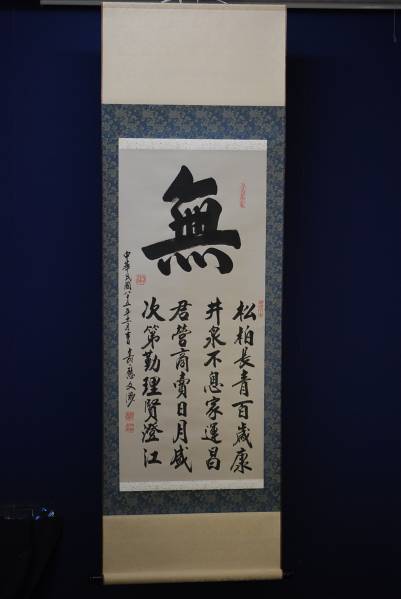 無
松柏長青百歲康
井泉不息家運昌
君營商賣日月盛
次第勤理賢澄江
中華民國八十五年十二月